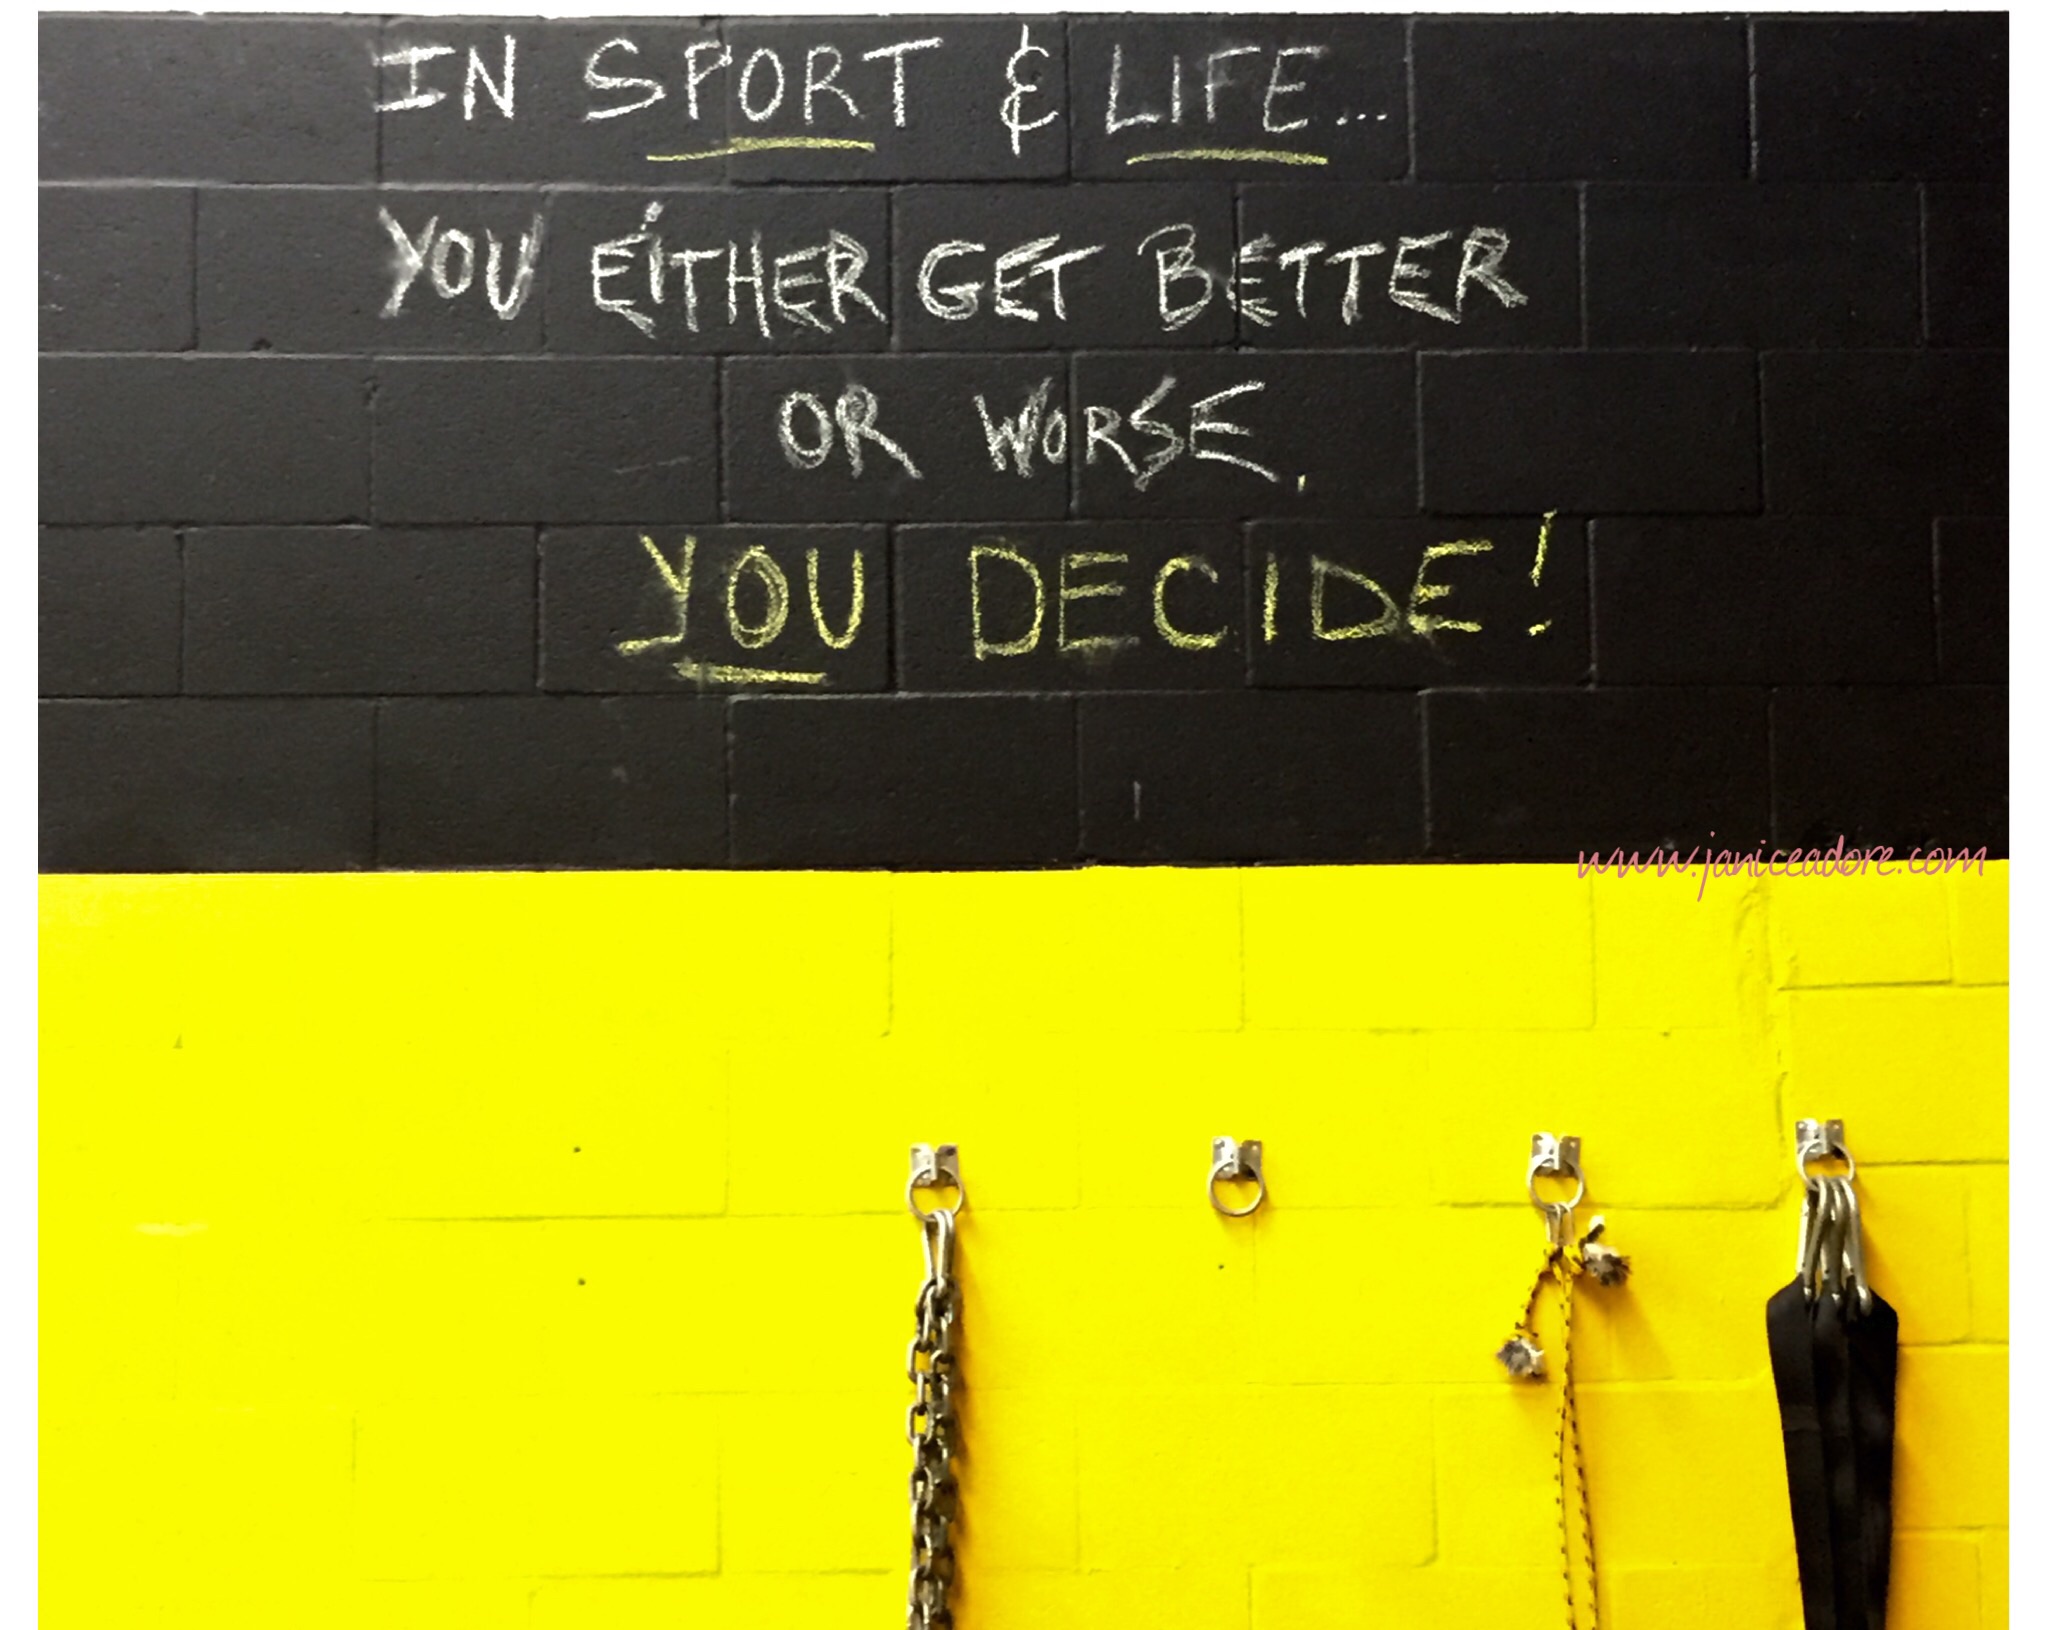 IN SPORT & LIFE...
YOU EITHER GET BETTER
OR WORSE.
YOU DECIDE!
www.janiceadore.com